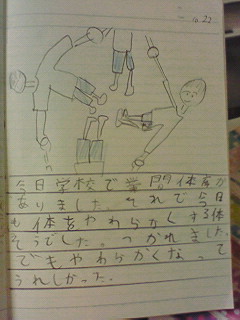 10.22.
今日学校で業間体育が
ありました。それで今日
も体をやわらかくする体
そうでした。つかれました。
でもやわらかくなって
うれしかった。